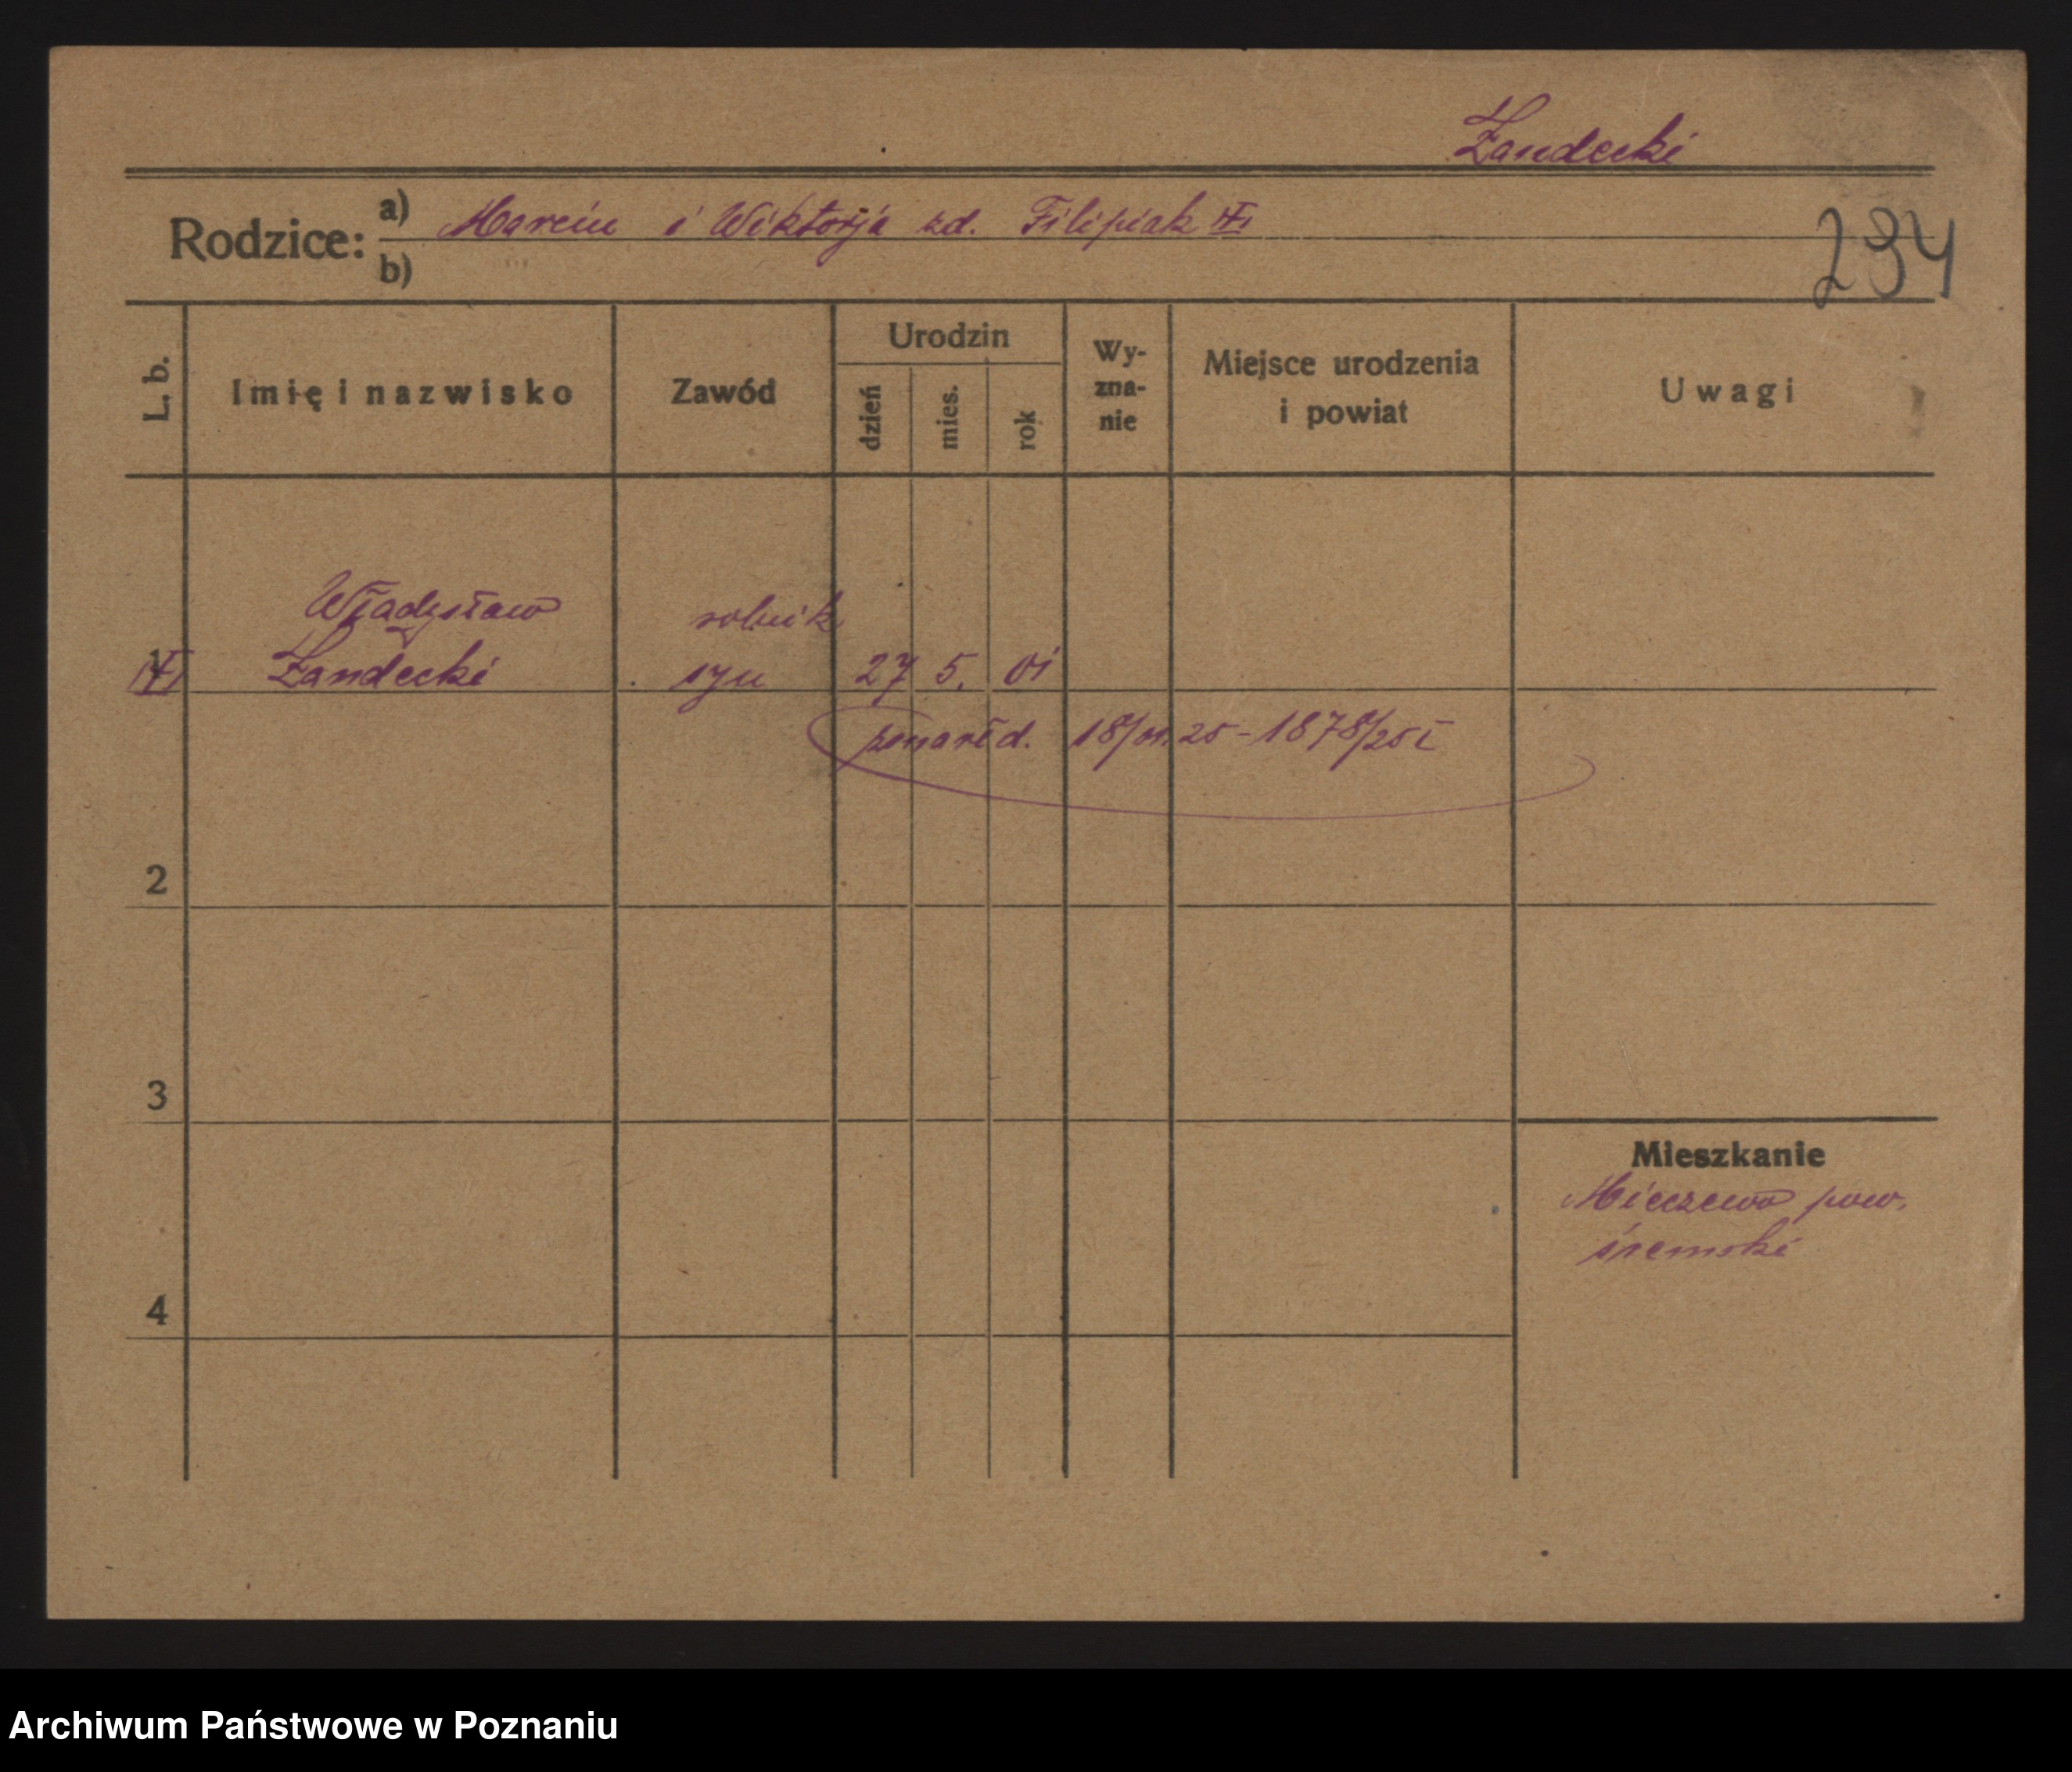 Żandecki
Rodzice: a) Marcin i Wiktorja zd. Filipiak
b)
234
L. b.
Imię i nazwisko
Zawód
Urodzin
dzień
mies.
rok
Wy-
zna-
nie
Miejsce urodzenia
i powiat
Uwagi
Władysław rolnik
1 Żandecki syn 27 5. 01
zmarł d. 18/ 25 - 1878/25
2
3
Mieszkanie
Mieczewo pow.
śremski
4
Archiwum Państwowe w Poznaniu